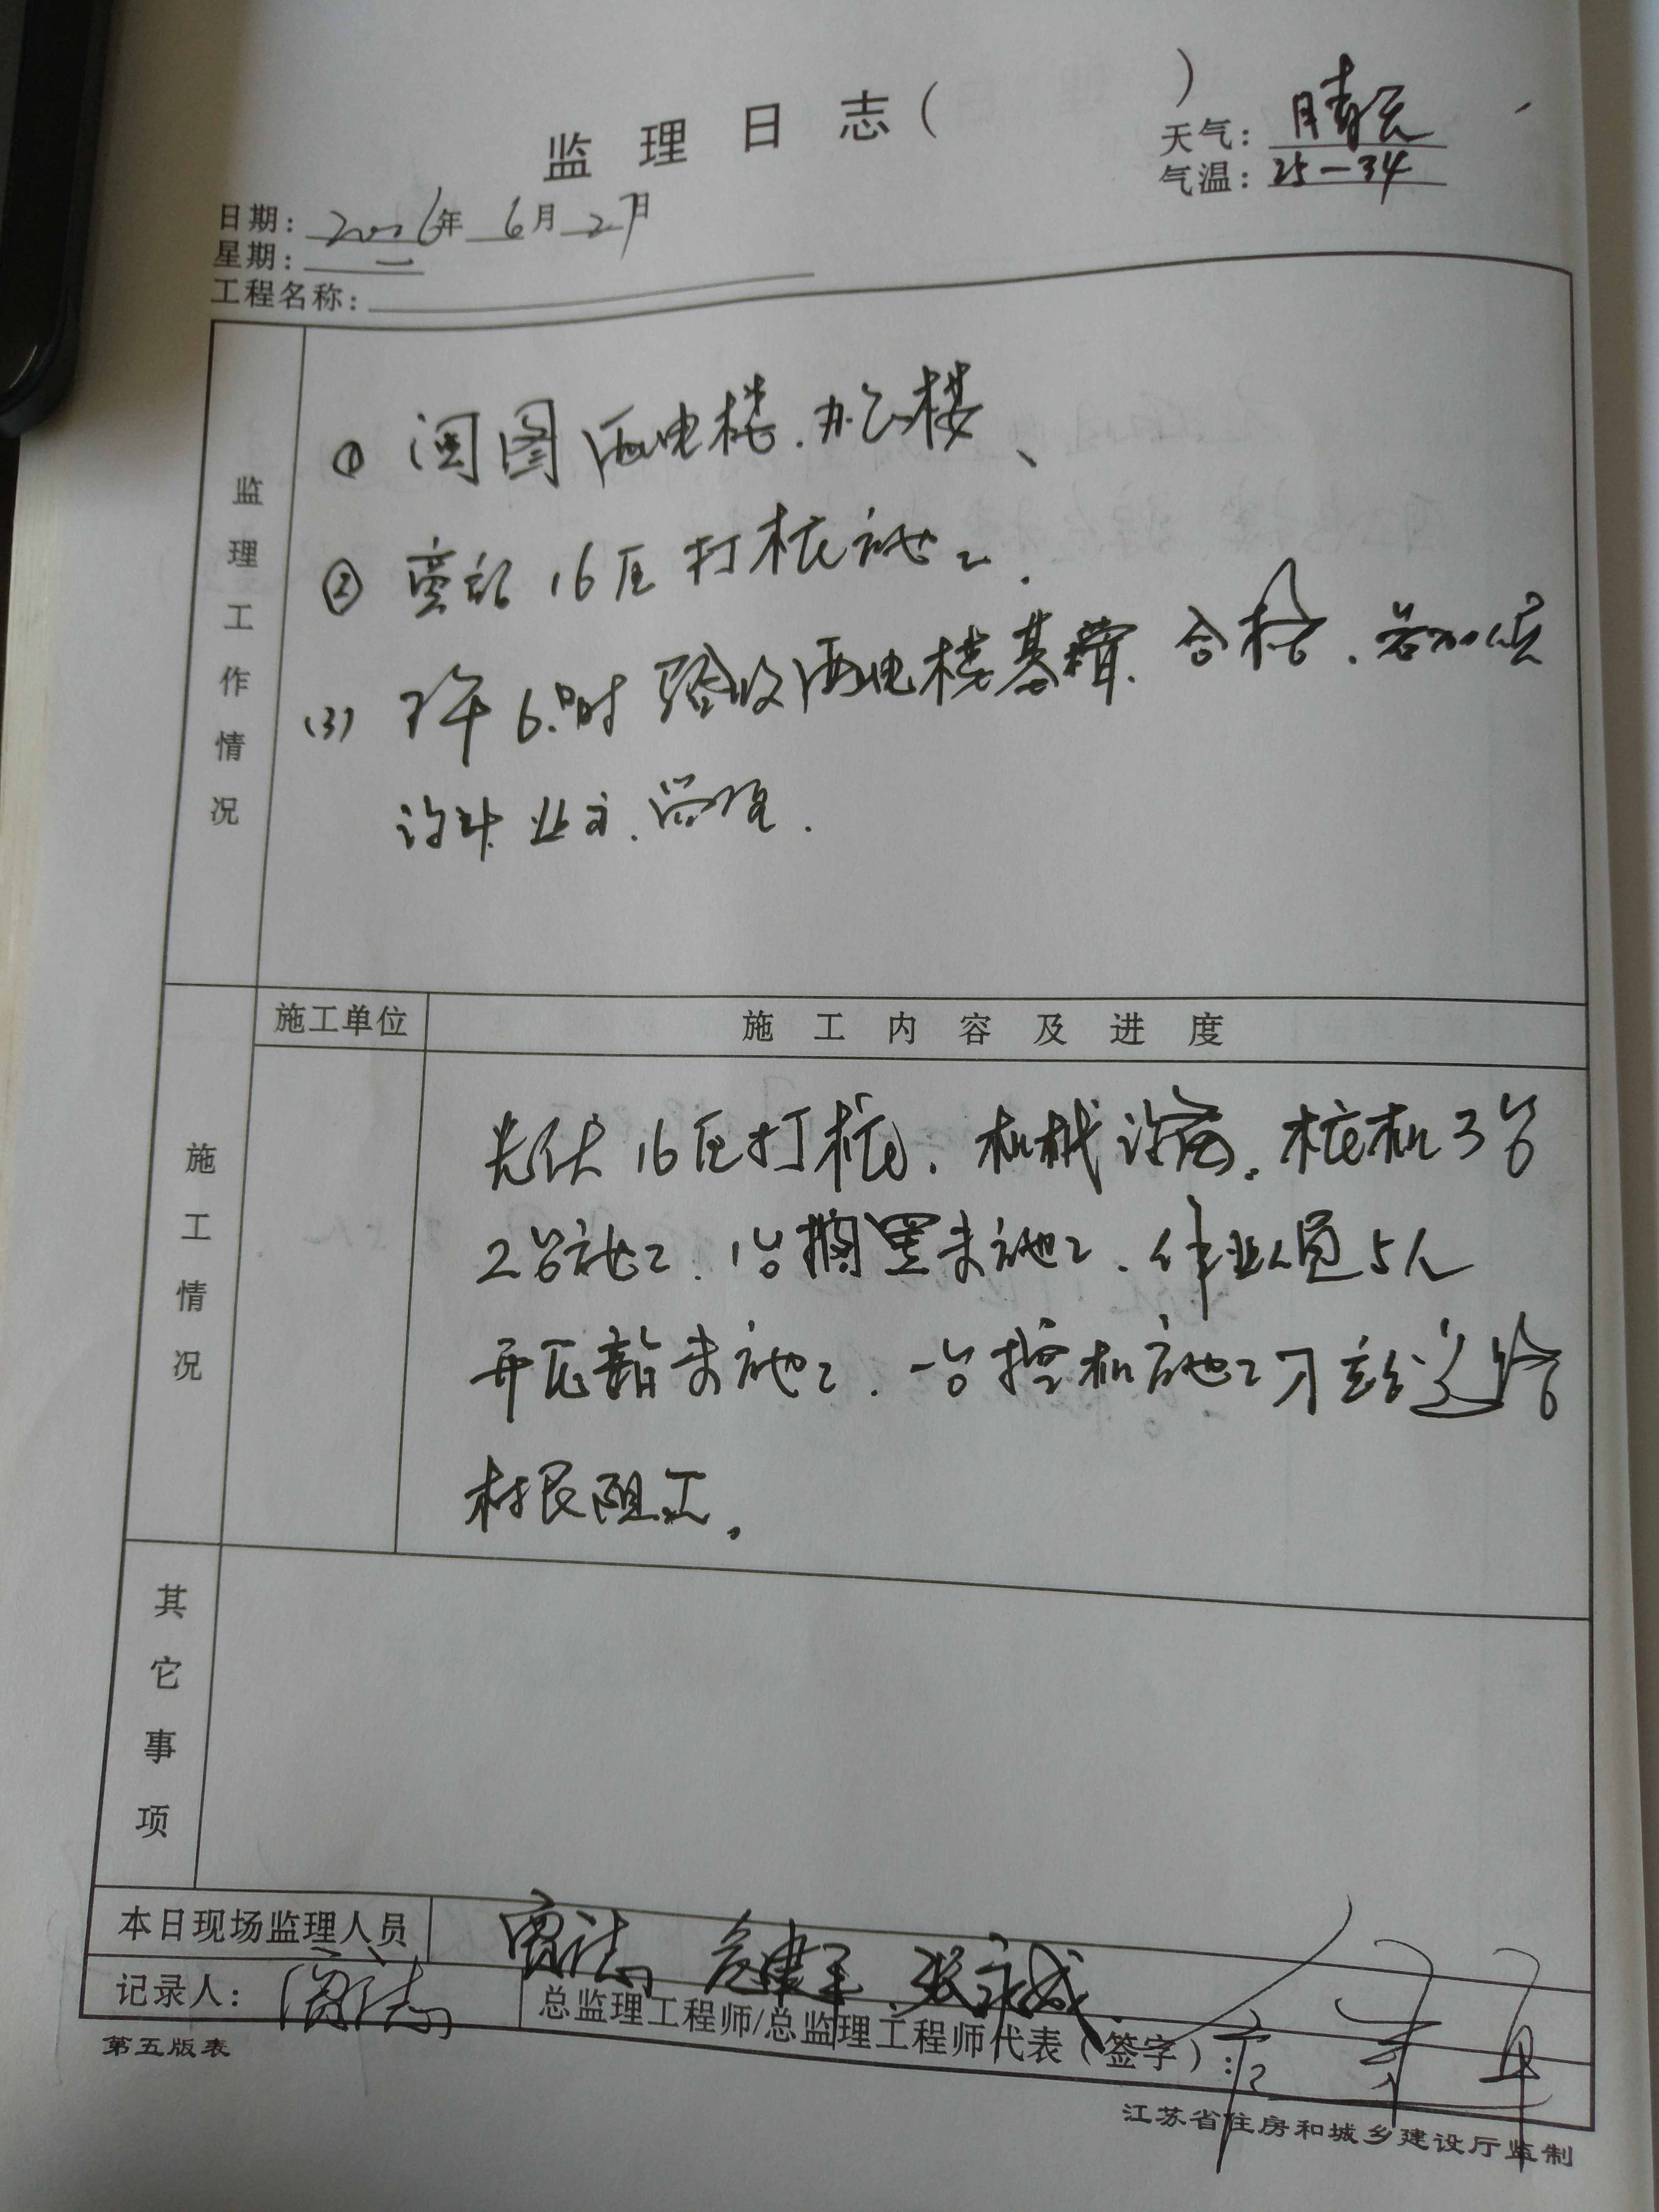 监理日志( )
天气: 晴云
气温: 25-34
日期: 2016年 6月 27日
星期: 一
工程名称:
监理工作情况
① 阅图 配电楼、办公楼、
② 旁站 16区 打桩施工.
(3) 下午6时 验收配电楼基槽. 合格.
设计 业主.
施工单位
施工内容及进度
施工情况
光伏16区打桩. 机械设备. 桩机3台
2台施工. 1台搁置未施工. 作业人员5人
升压站未施工. 一台挖机施工 道路
村民阻工.
其它事项
本日现场监理人员
记录人:
总监理工程师/总监理工程师代表(签字):
第五版表
江苏省住房和城乡建设厅监制